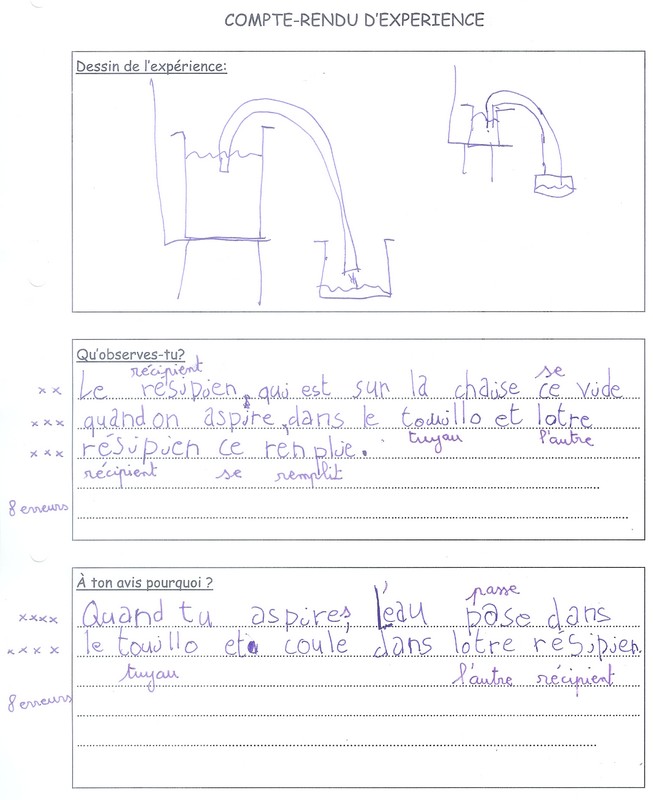 COMPTE-RENDU D'EXPERIENCE
Dessin de l'expérience:
Qu'observes-tu?
récipient se
xx Le résipien, qui est sur la chaise ce vide
xxx quand on aspire, dans le touillo et lotre
tuyau l'autre
xxx résipien ce renplie.
récipient se remplit
8 erreurs
À ton avis pourquoi ?
passe
xxxx Quand tu aspires, l'eau pase dans
xxxx le touillo et coule dans lotre résipien.
tuyau l'autre récipient
8 erreurs